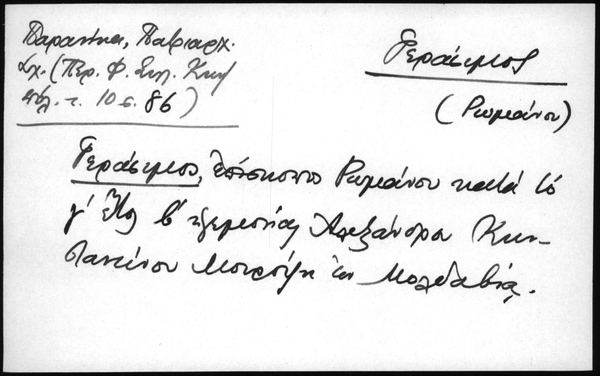 Παρανίκα, Πατριαρχ.
Σχ. (Περ. Φ. Συλ. Κων/
πόλ. τ. 10 σ. 86)
Γεράσιμος
(Ρωμάνου)
Γεράσιμος, ἐπίσκοπος Ρωμάνου κατά τό
γ' ἔτος β' ἡγεμονίας Ἀλεξάνδρου Κων-
σταντίνου Μουρούζη ἐν Μολδαβίᾳ.